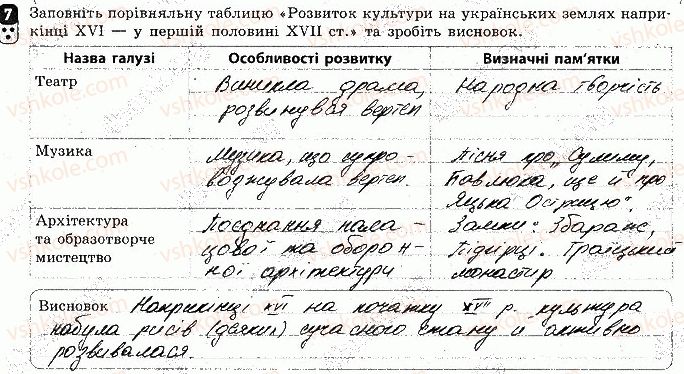 7 Заповніть порівняльну таблицю «Розвиток культури на українських землях напри-
кінці XVI — у першій половині XVII ст.» та зробіть висновок.
Назва галузі Особливості розвитку Визначні пам'ятки
Театр Виникла драма, Народна творчість
розвинувся вертеп
Музика Музика, що супро- Пісня про „Сулиму,
воджувала вертеп. Павлюка, ще й про
Яцька Остряцю".
Архітектура Поєднання пала- Замки: Збараж,
та образотворче цової та оборон- Підгірці. Троїцький
мистецтво ної архітектури монастир
Висновок Наприкінці XVI на початку XVII р. культура
набула рисів (деяких) сучасного стану й активно
розвивалася.
vshkole.com